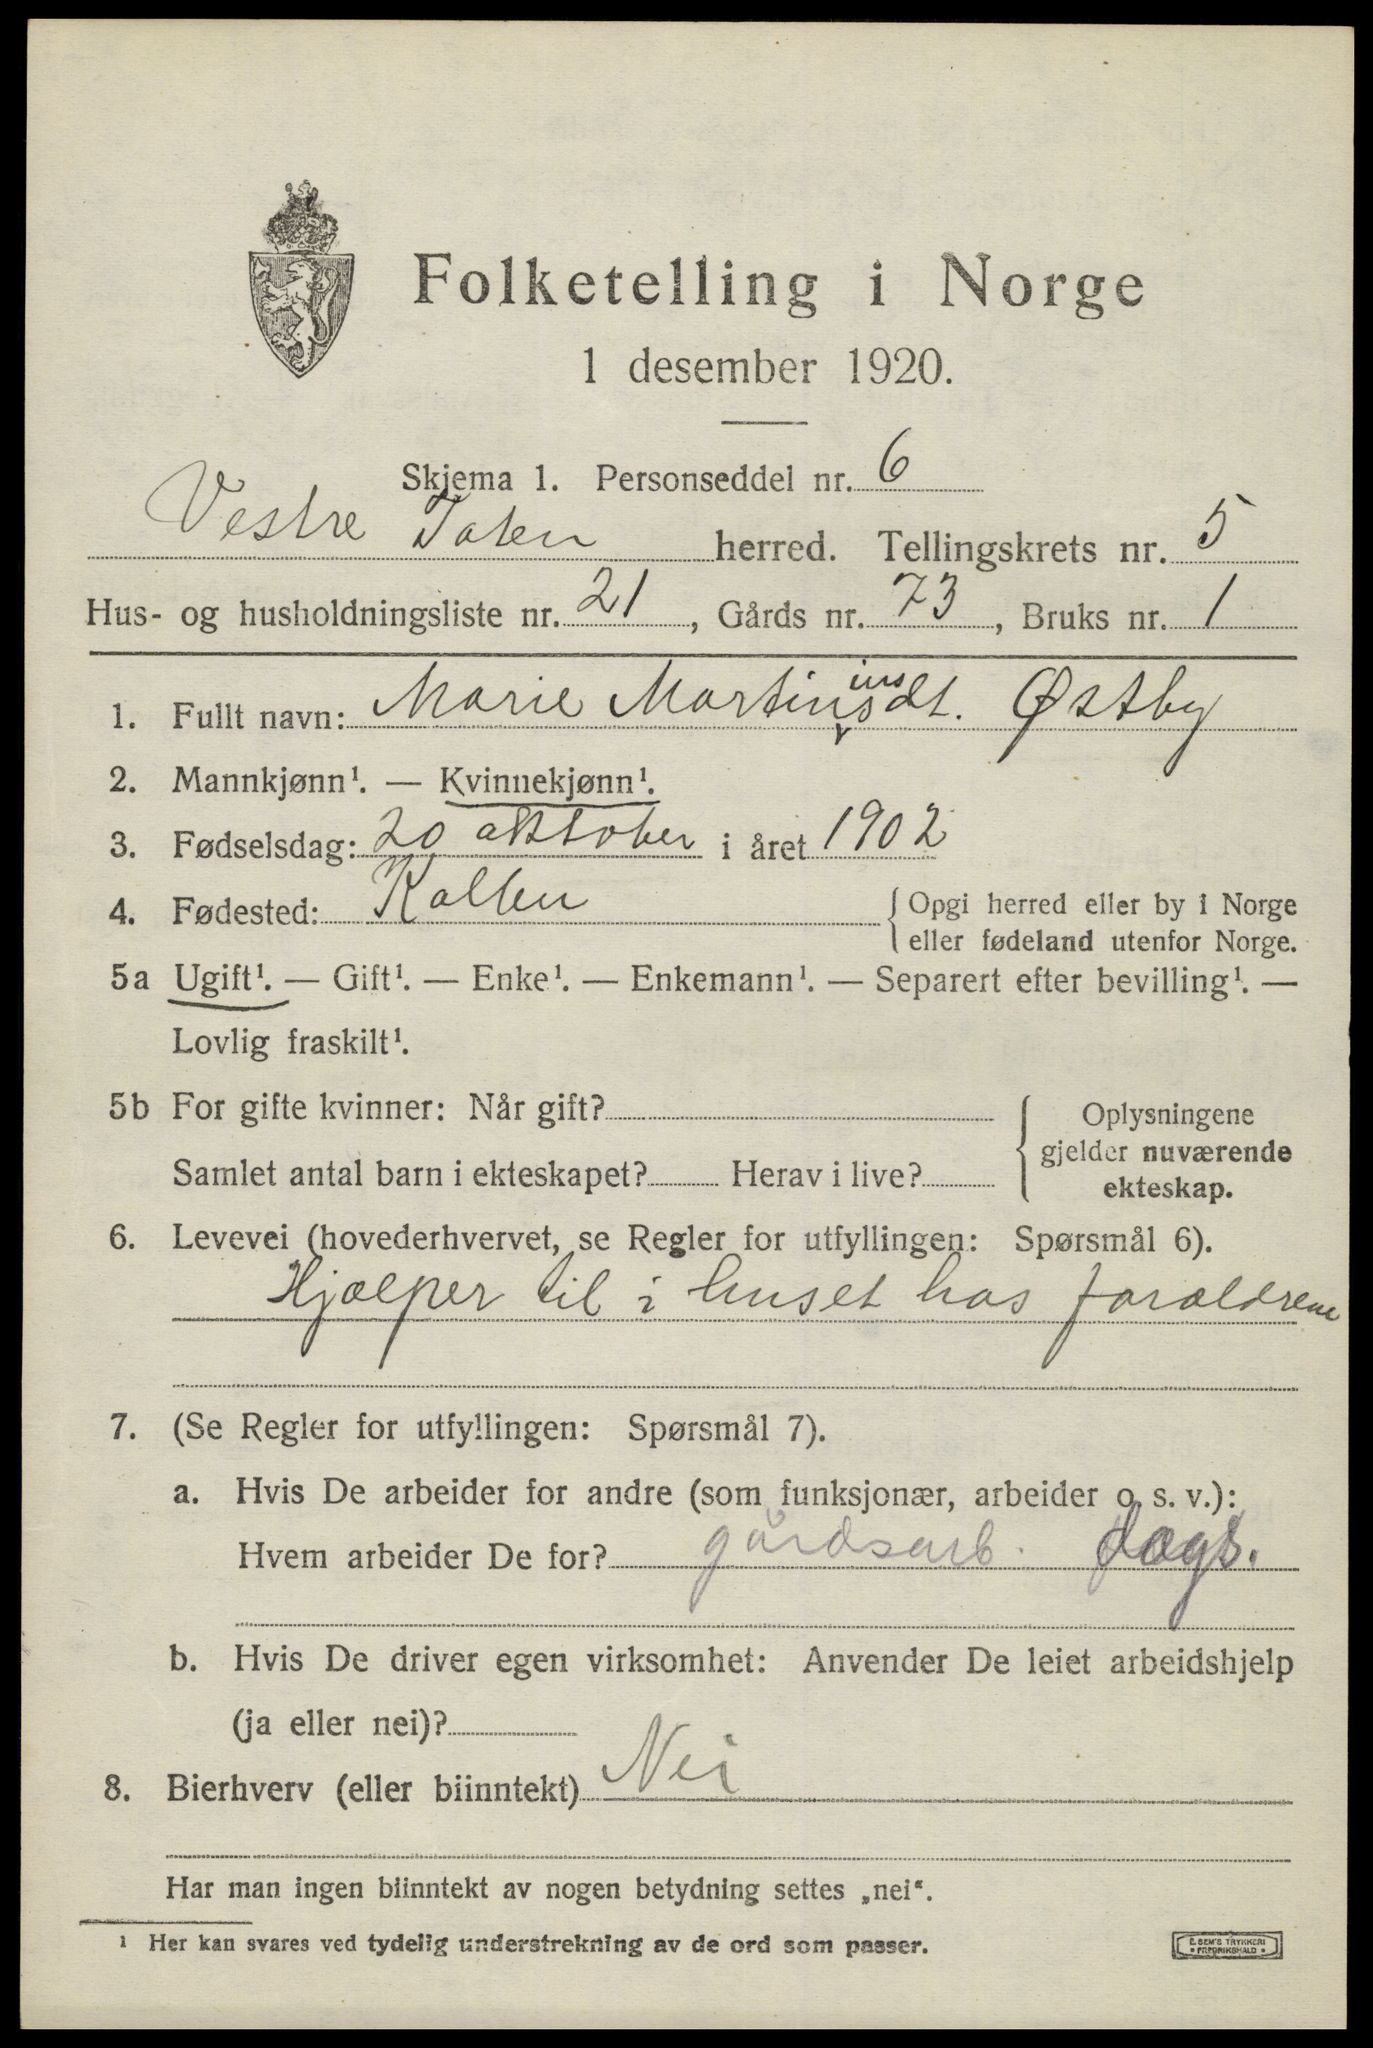 Folketelling i Norge
1 desember 1920.
Skjema 1. Personseddel nr. 6
Vestre Toten herred. Tellingskrets nr. 5
Hus- og husholdningsliste nr. 21, Gårds nr. 73, Bruks nr. 1
1. Fullt navn: Marie Martinsdt. Østby
ins
2. Mannkjønn¹. — Kvinnekjønn¹.
3. Fødselsdag: 20 oktober i året 1902
4. Fødested: Kolbu
{ Opgi herred eller by i Norge
eller fødeland utenfor Norge.
5a Ugift¹. — Gift¹. — Enke¹. — Enkemann¹. — Separert efter bevilling¹. —
Lovlig fraskilt¹.
5b For gifte kvinner: Når gift?
Samlet antal barn i ekteskapet? Herav i live?
{ Oplysningene
gjelder nuværende
ekteskap.
6. Levevei (hovederhvervet, se Regler for utfyllingen: Spørsmål 6).
Hjælper til i huset hos forældrene
7. (Se Regler for utfyllingen: Spørsmål 7).
a. Hvis De arbeider for andre (som funksjonær, arbeider o. s. v.):
Hvem arbeider De for? gårdsarb. dags.
b. Hvis De driver egen virksomhet: Anvender De leiet arbeidshjelp
(ja eller nei)?
8. Bierhverv (eller biinntekt) Nei
Har man ingen biinntekt av nogen betydning settes „nei“.
¹ Her kan svares ved tydelig understrekning av de ord som passer.
E. SEM'S TRYKKERI
• FREDRIKSHALD •